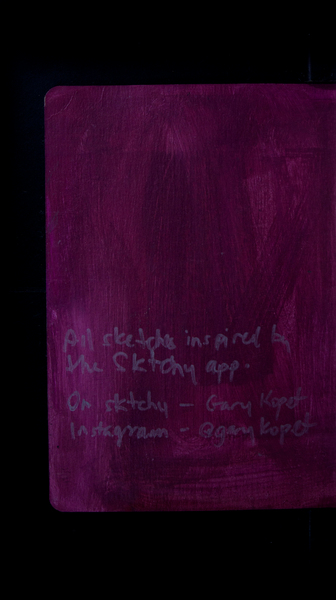 All sketches inspired by
the Sktchy app.
On sktchy - Gary Kopet
Instagram - @garykopet